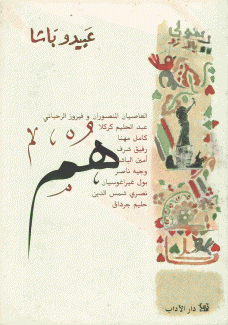 عبيدو باشا
العاصيان المنصوران و فيروز الرحباني
عبد الحليم كركلا
كامل مهنا
رفيق شرف
أمين الباشا
وجيه ناصر
بول غيراغوسيان
نصري شمس الدين
حليم جرداق
هُم
دار الآداب